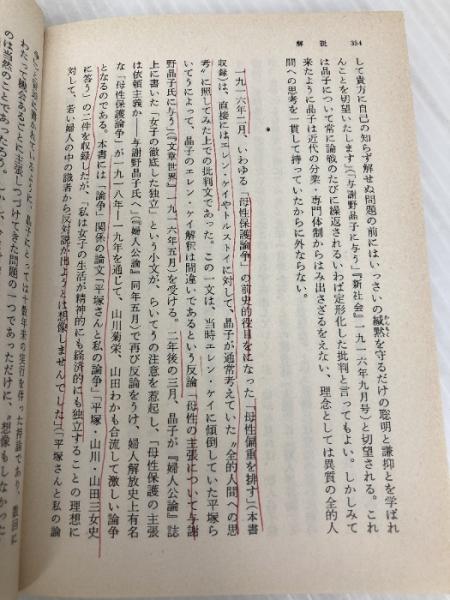 解説 354
して貴方に自己の知らず解せぬ問題の前にはいっさいの緘黙を守るだけの聡明と謙抑とを学ばれ
んことを切望いたします」(「与謝野晶子に与う」『新社会』一九一六年九月号)と切望される。これ
は晶子について常に論戦のたびに繰返されるいわば定形化した批判と言ってもよい。しかしみて
来たように晶子は近代の分業・専門体制からはみ出さざるをえない、理念としては異質の全的人
間への思考を一貫して持っていたからに外ならない。
一九一六年二月、いわゆる「母性保護論争」の前史的役目をになった「母性偏重を排す」(本書
収録)は、直接にはエレン・ケイやトルストイに対して、晶子が通常考えていた〝全的人間への思
考〟に照してみた上での批判文であった。この一文は、当時エレン・ケイに傾倒していた平塚ら
いてうによって、晶子のエレン・ケイ解釈は間違いであるという反論「母性の主張について与謝
野晶子氏に与う」(『文章世界』一九一六年五月)を受ける。二年後の三月、晶子が『婦人公論』誌
上に書いた「女子の徹底した独立」という小文が、らいてうの注意を惹起し、「母性保護の主張
は依頼主義か——与謝野晶子氏へ」(『婦人公論』同年五月)で再び反論をうけ、婦人解放史上有名
な「母性保護論争」が一九一八—一九年を通じて、山川菊栄、山田わかも合流して激しい論争
となるのである。本書には「論争」関係の論文「平塚さんと私の論争」「平塚・山川・山田三女史
に答う」の二件を収録したが、「私は女子の生活が精神的にも経済的にも独立することの理想に
対して、若い婦人の中の識者から反対説が出ようとは想像しませんでした」(「平塚さんと私の論
争」)と
わたって機会あるごとに主張しつづけてきた問題の一つであっただけに、〝想像もしなかった
のは当然のことであったろう。